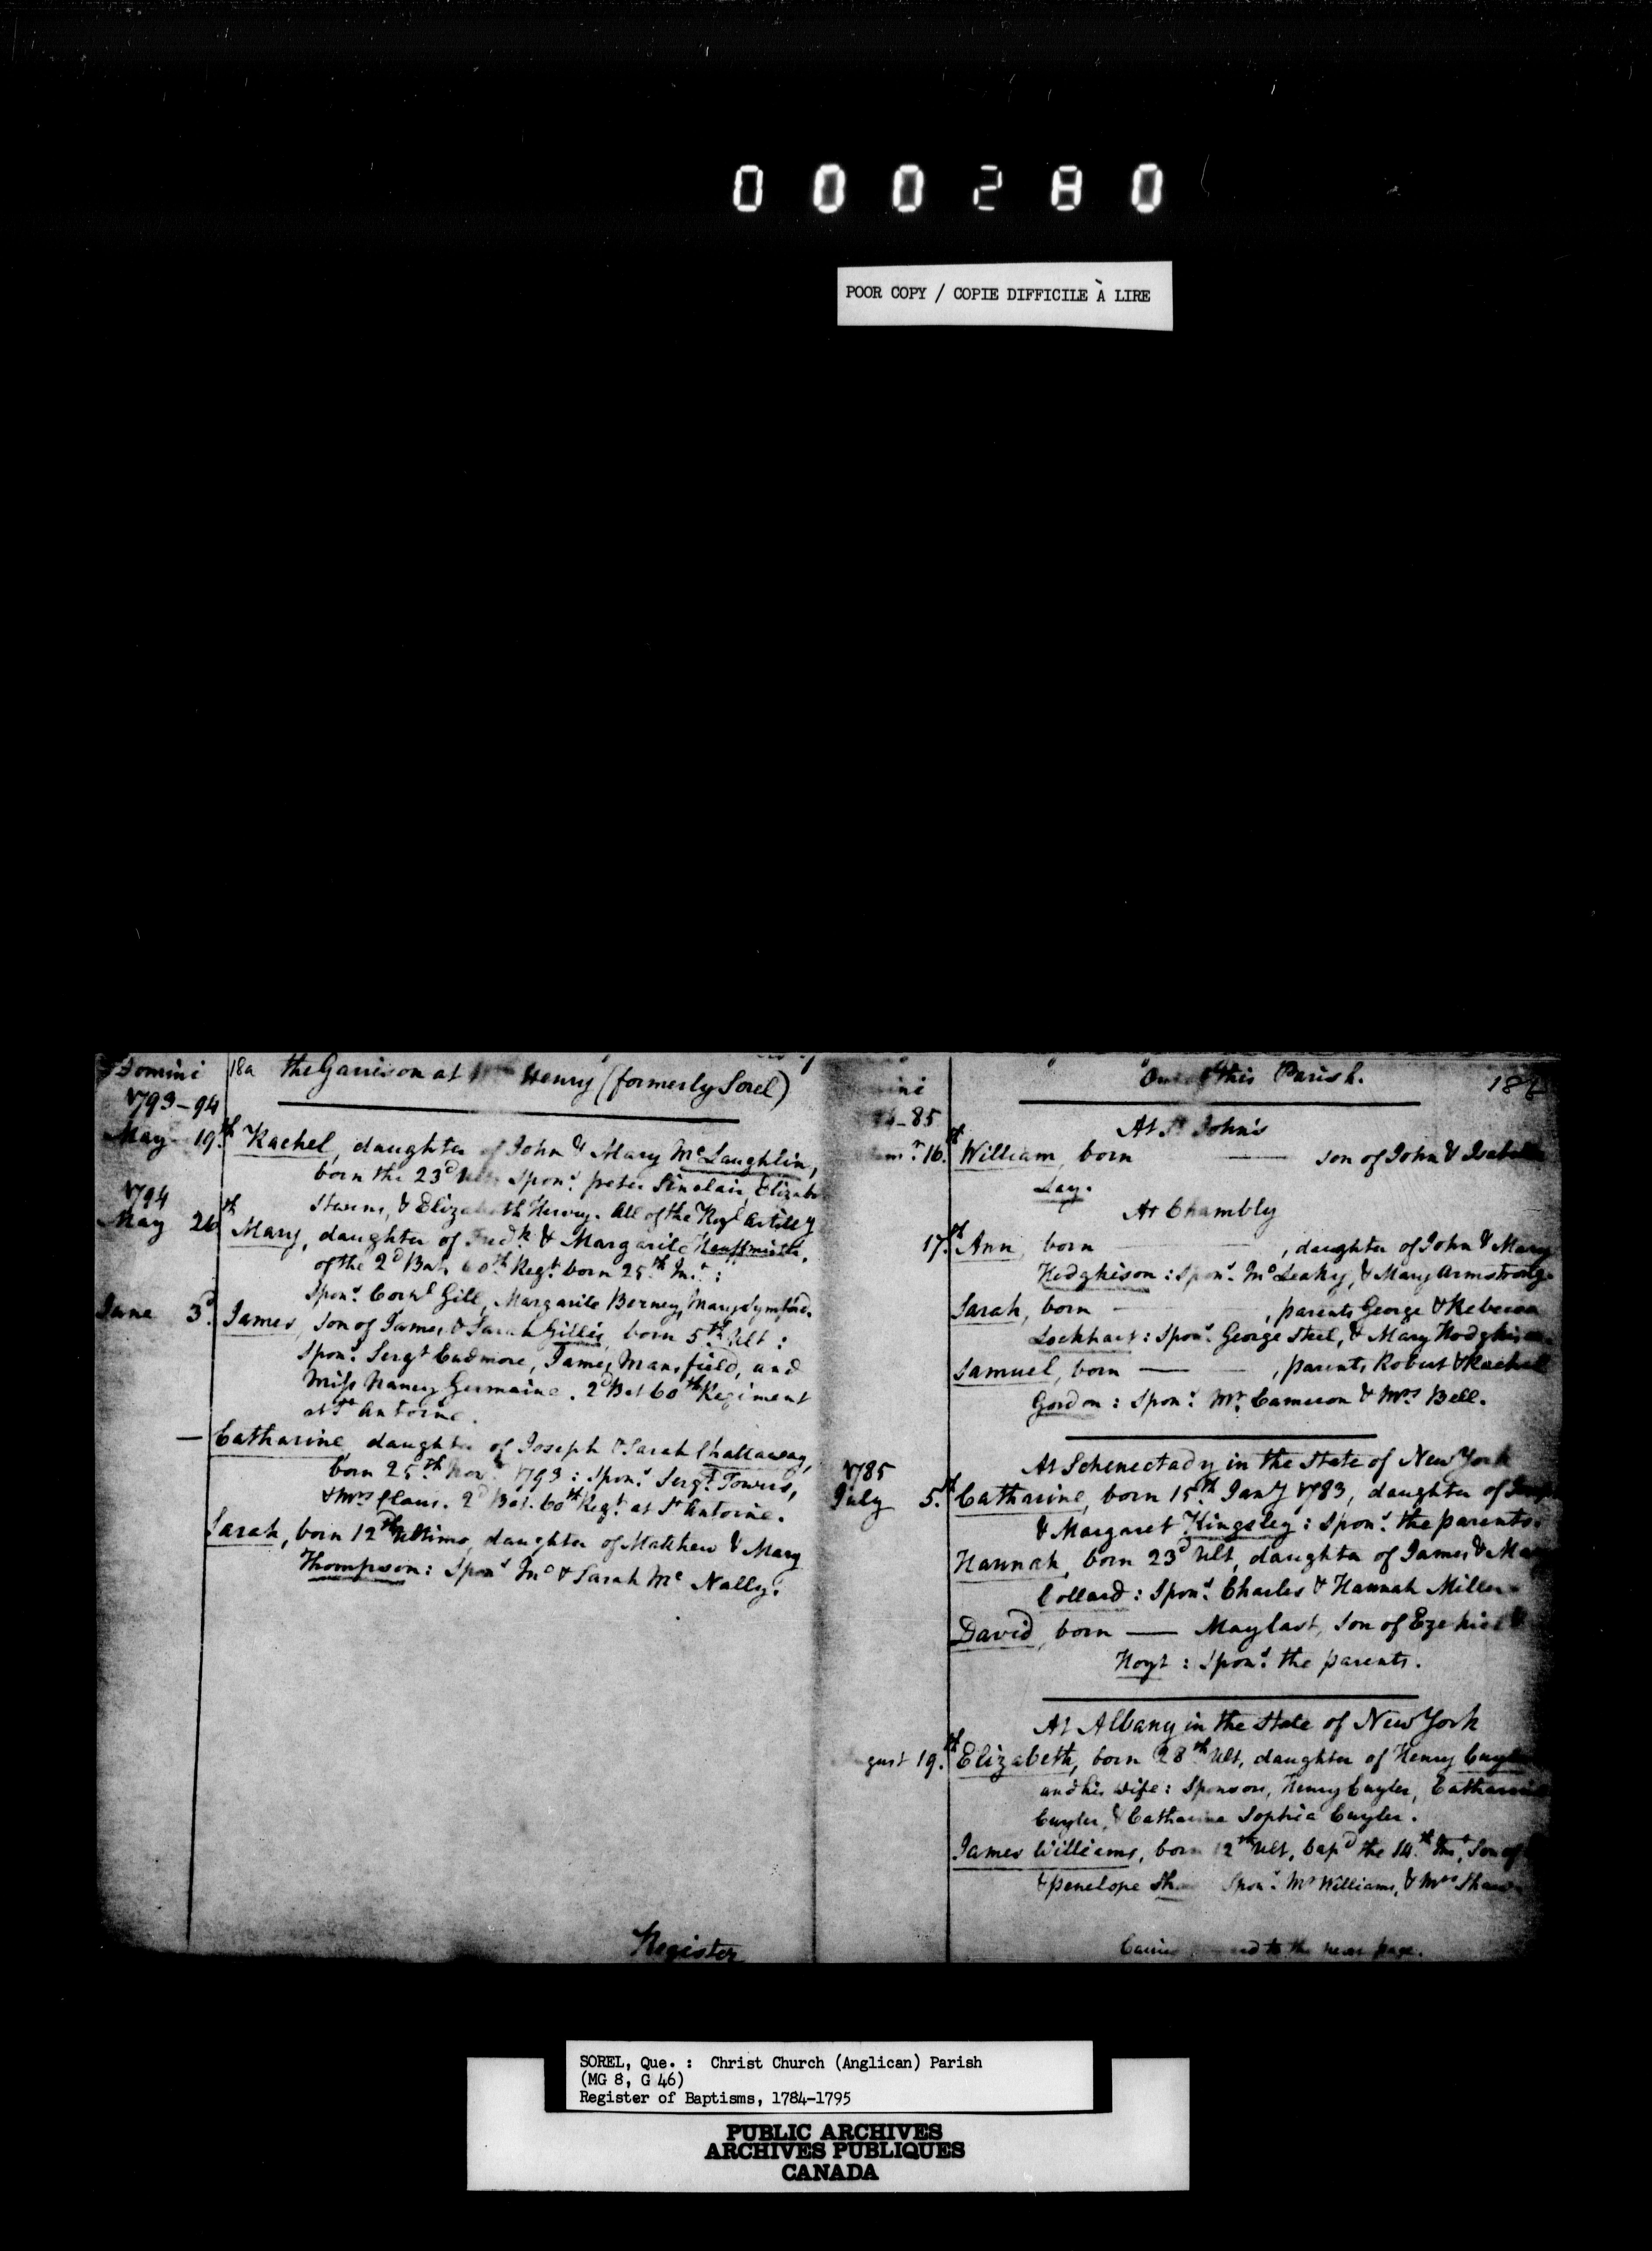 000280
POOR COPY / COPIE DIFFICILE À LIRE
Domini
1793-94
18a the Garrison at Wm Henry (formerly Sorel)
May 19th Rachel, daughter of John & Mary McLaughlin,
born the 23d Ult: Spons. peter Sinclair, Elizabe
& Elizabeth Hervey. All of the Royl Artilly
1794
May 26th Mary, daughter of Fredk. & Margarite
of the 2d Bat. 60th Regt. born 25th Inst:
Spons. Gill, Margarite Berney, Mary
June 3d. James, son of James & Sarah Gillis, born 5th Ult:
Spons. Sergt Cudmore, James Mansfield, and
Miss Nancy Germaine. 2d Bat 60th Regiment
at St Antoine.
— Catharine, daughter of Joseph & Sarah Challaway,
born 25th Novr 1793: Spons. Sergt. Towers,
& Mrs Claus. 2d Bat. 60th Regt. at St Antoine.
Sarah, born 12th Ultimo, daughter of Matthew & Mary
Thompson: Spons Jno & Sarah Mc Nally.
Register
-85
Out of this Parish. 18b
At St John's
16th William, born —— son of John & Isabella
Lay.
At Chambly
17th Ann, born ——, daughter of John & Mary
Hodgkison: Spons. Jno Leahy, & Mary Armstrong.
Sarah, born ——, parents George & Rebecca
Lockhart: Spons. George Steel, & Mary Hodgkison
Samuel, born ——, parents Robert & Rachel
Gordon: Spons. Mr. Cameron & Mrs Bell.
At Schenectady in the State of New York
1785
July 5th Catharine, born 15th Jany 1783, daughter of
& Margaret Kingsley: Spons. the parents.
Hannah, born 23d Ult, daughter of James & Ma
Collard: Spons. Charles & Hannah Miller
David, born —— May last, son of Ezekiel &
Hoyt: Spons. the parents.
At Albany in the State of New York
gust 19th Elizabeth, born 28th Ult, daughter of Henry Cuyler
and his Wife: Sponsors, Henry Cuyler, Catharine
Cuyler, & Catharina Sophia Cuyler.
James Williams, born 12th Ult, bapd the 14th Inst, Son of
& penelope Sha Spons. Mr Williams, & Mrs Shaw
Carried to the next page.
SOREL, Que. : Christ Church (Anglican) Parish
(MG 8, G 46)
Register of Baptisms, 1784-1795
PUBLIC ARCHIVES
ARCHIVES PUBLIQUES
CANADA